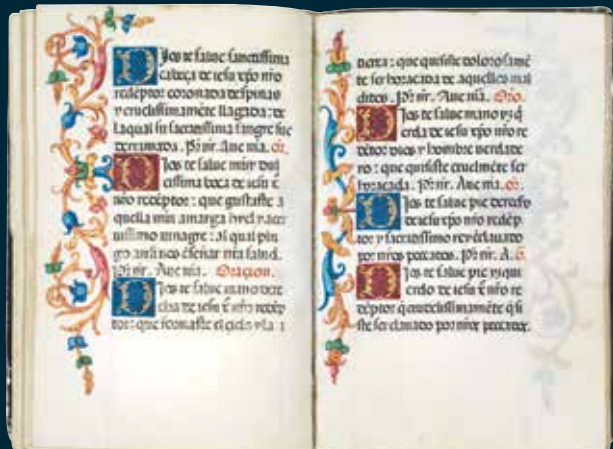 Dios te salue sanctissima
cabeça de iesu xpo nr̄o
redēptor coronada despinas
y cruelissimamēte llagada: de
laqual su sacratissima sangre fue
derramada. Pr̄ nr̄. Aue mā. Or̄.
Dios te salue muy dul
cissima boca de iesu x̄
nr̄o redēptor: que gustaste a
quella muy amarga hyel y acer
uissimo vinagre: al qual plu
go a mi nos ēseñar mia salud.
Pr̄ nr̄. Aue mā. Oracion.
Dios te salue mano dere
cha de iesu x̄ nr̄o redēp
tor: que formaste el cielo y la t
ierra: que quisiste dolorosamē
te ser horacada de aquellos mal
ditos. Pr̄ nr̄. Aue mā. Orō.
Dios te salue mano yzq
erda de iesu xpo nr̄o re
dētor dios y hombre verdade
ro: que quisiste cruelmēte ser
horacada. Pr̄ nr̄. Aue mā. Or̄.
Dios te salue pie derecho
de iesu xpo nr̄o redēp
tor y sacratissimo rey ēclauado
por nr̄os peccados. Pr̄ nr̄. A. O.
Dios te salue pie yzquie
rdo de iesu x̄ nr̄o re
dēptor q̄ cruelissimamēte q̄si
ste ser clauado por nr̄os peccados.